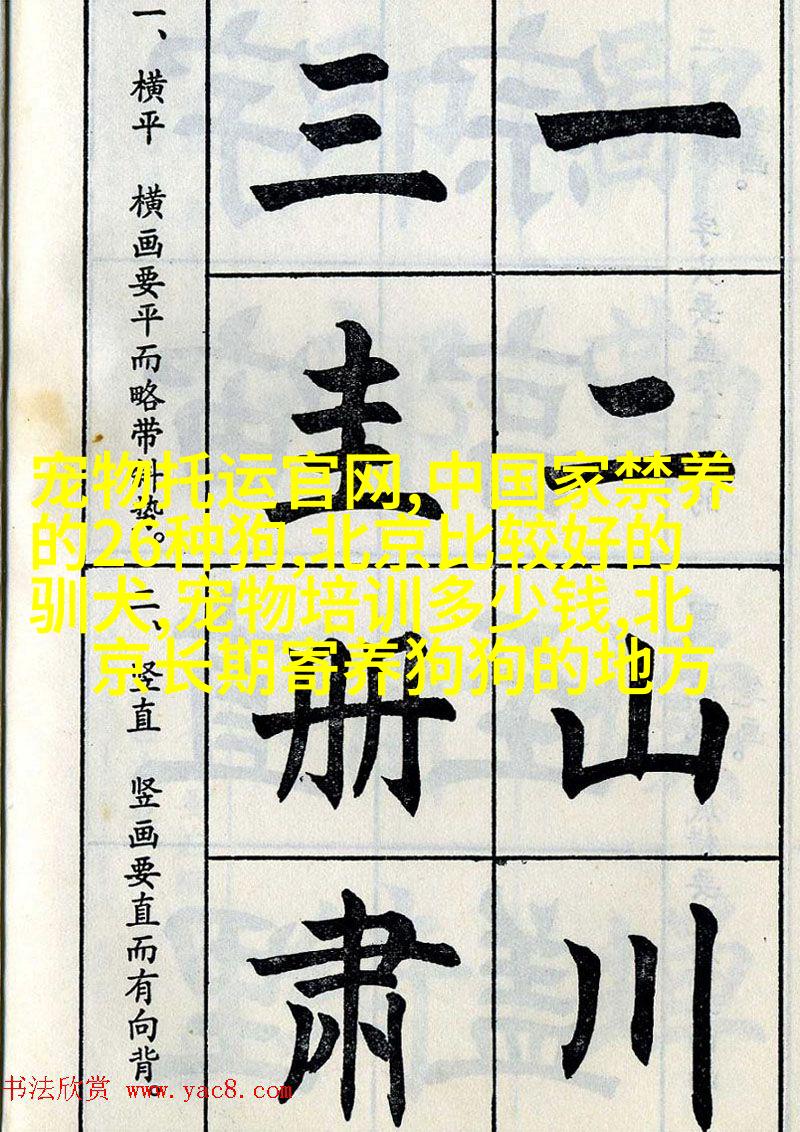 一
二
山
川
三
圭
册
肃
一、横平 横画要平而略带斜势。
二、竖直 竖画要直而有向背。
宠物托运官网,中国家禁养
的26种狗,北京比较好的
驯犬,宠物培训多少钱,北
京长期寄养狗狗的地方
书法欣赏 www.yac8.com